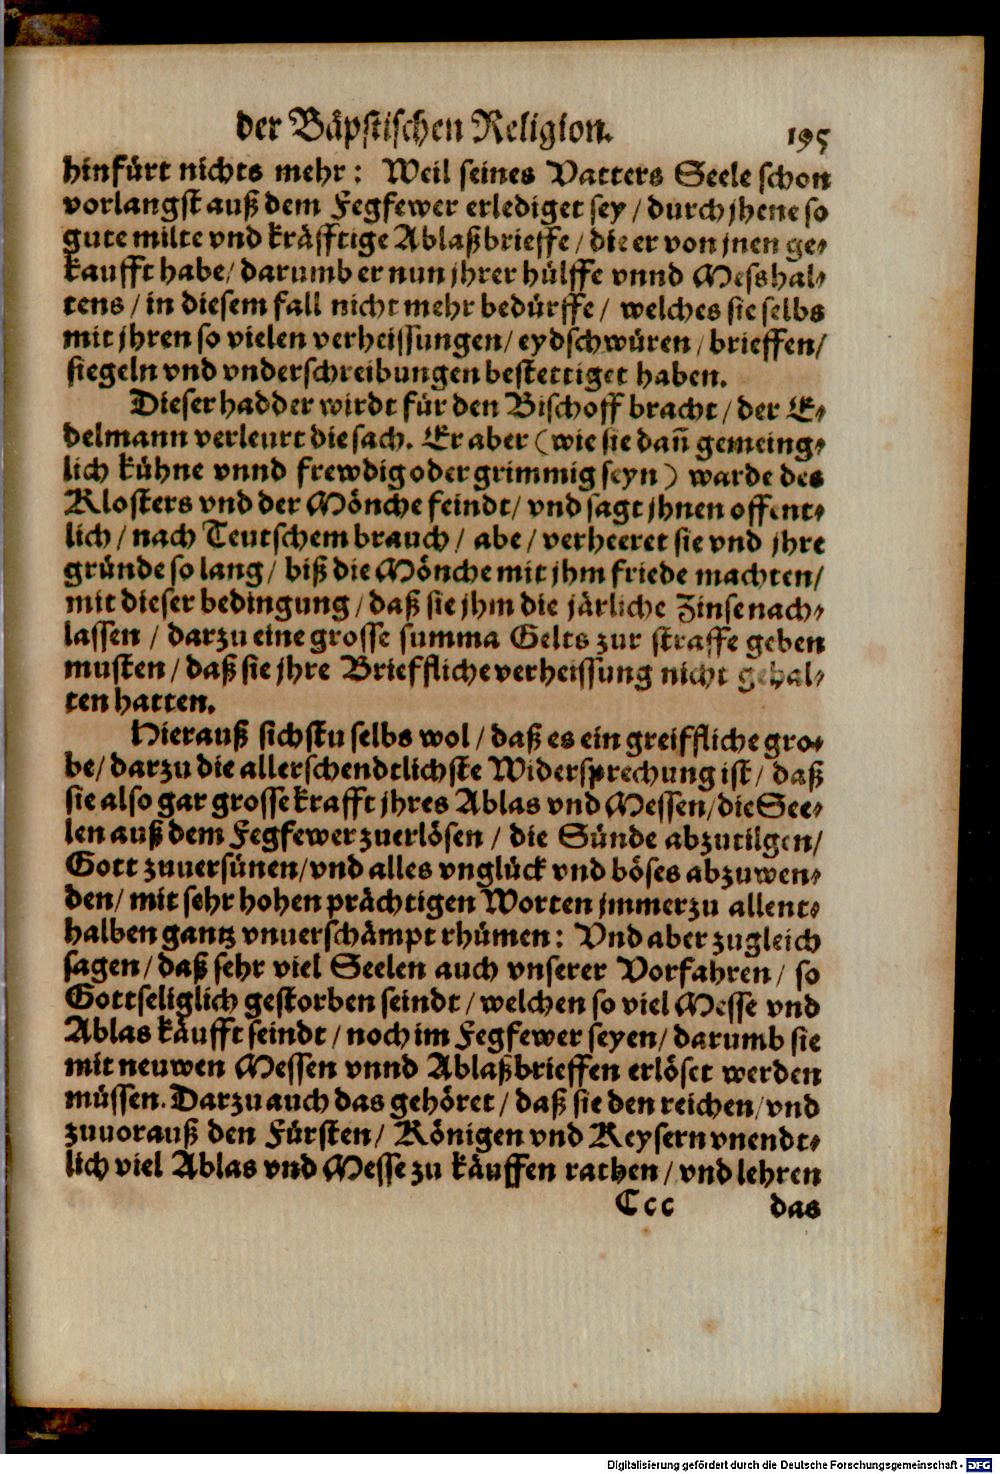 der Bäpstischen Religion. 195
hinfürt nichts mehr: Weil seines Vatters Seele schon
vorlangst auß dem Fegfewer erlediget sey / durch jhene so
gute milte vnd kräfftige Ablaßbrieffe / die er von jnen ge-
kaufft habe / darumb er nun jhrer hülffe vnnd Messhal-
tens / in diesem fall nicht mehr bedürffe / welches sie selbs
mit jhren so vielen verheissungen / eydschwüren / brieffen /
siegeln vnd vnderschreibungen bestettiget haben.
Dieser hadder wirdt für den Bischoff bracht / der E-
delmann verleurt die sach. Er aber (wie sie dañ gemeing-
lich kühne vnnd frewdig oder grimmig seyn) warde des
Klosters vnd der Mönche feindt / vnd sagt jhnen offent-
lich / nach Teutschem brauch / abe / verheeret sie vnd jhre
gründe so lang / biß die Mönche mit jhm friede machten /
mit dieser bedingung / daß sie jhm die järliche Zinse nach-
lassen / darzu eine grosse summa Gelts zur straffe geben
musten / daß sie jhre Brieffliche verheissung nicht gehal-
ten hatten.
Hierauß sichstu selbs wol / daß es ein greiffliche gro-
be / darzu die allerschendtlichste Widersprechung ist / daß
sie also gar grosse krafft jhres Ablas vnd Messen / die See-
len auß dem Fegfewer zuerlösen / die Sünde abzutilgen /
Gott zuuersünen / vnd alles vnglück vnd böses abzuwen-
den / mit sehr hohen prächtigen Worten jmmerzu allent-
halben gantz vnuerschämpt rhümen: Vnd aber zugleich
sagen / daß sehr viel Seelen auch vnserer Vorfahren / so
Gottseliglich gestorben seindt / welchen so viel Messe vnd
Ablas käufft seindt / noch im Fegfewer seyen / darumb sie
mit neuwen Messen vnnd Ablaßbrieffen erlöset werden
müssen. Darzu auch das gehöret / daß sie den reichen / vnd
zuuorauß den Fürsten / Königen vnd Keysern vnendt-
lich viel Ablas vnd Messe zu käuffen rathen / vnd lehren
Ccc das
Digitalisierung gefördert durch die Deutsche Forschungsgemeinschaft - DFG